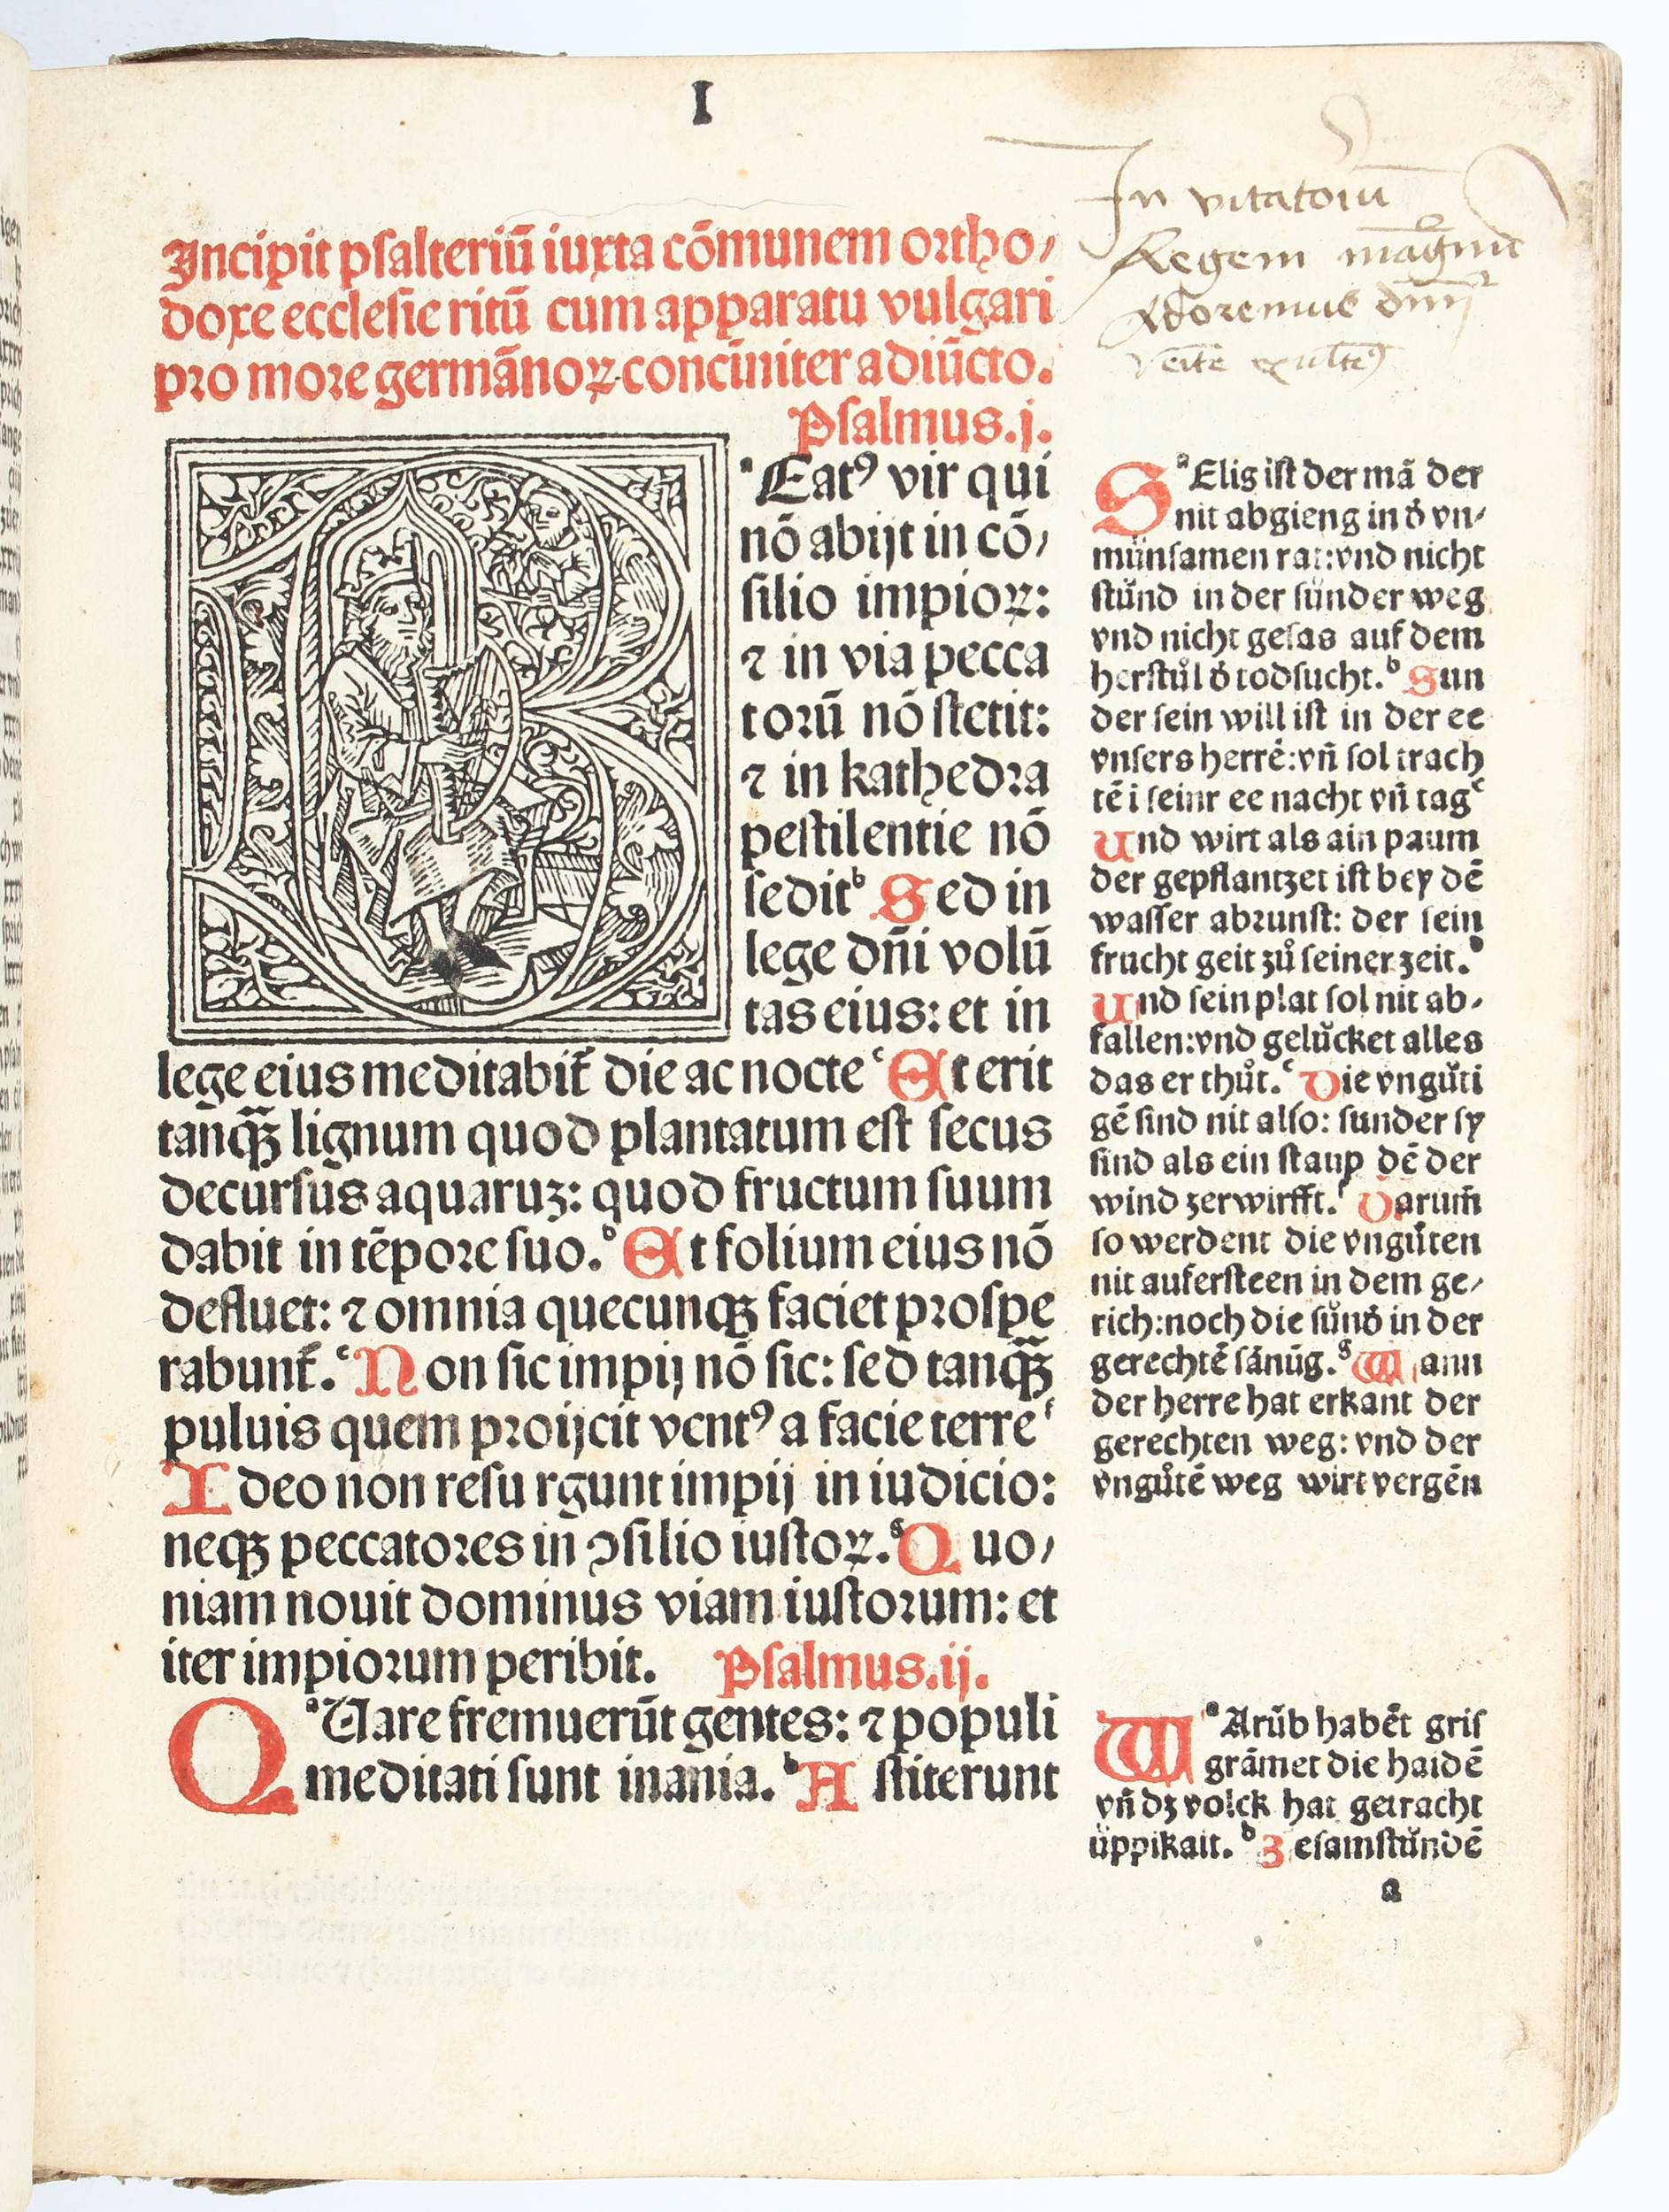 I
In vitatoriū
Regem magnū
Adoremus dnm̄
Venite exultē
Incipit psalteriū iuxta cōmunem ortho⸗
doxe ecclesie ritū cum apparatu vulgari
pro more germānoꝝ concīniter adiūcto.
Psalmus.j.
ᵃEatꝰ vir qui
nō abijt in cō⸗
silio impioꝝ:
⁊ in via pecca
torū nō stetit:
⁊ in kathedra
pestilentie nō
seditᵇ Sed in
lege dn̄i volū
tas eius: et in
lege eius meditabit̄ die ac nocteᶜ Et erit
tanqꝫ̄ lignum quod plantatum est secus
decursus aquaruꝫ: quod fructum suum
dabit in tēpore suo.ᵈ Et folium eius nō
defluet: ⁊ omnia quecunqꝫ faciet prospe
rabunt̄.ᵉ Non sic impij nō sic: sed tanqꝫ̄
puluis quem proijcit ventꝰ a facie terreᶠ
Ideo non resu rgunt impij in iudicio:
neqꝫ peccatores in ꝯsilio iustoꝝ.ᵍ Quo⸗
niam nouit dominus viam iustorum: et
iter impiorum peribit. Psalmus.ij.
QᵃUare fremuerūt gentes: ⁊ populi
meditati sunt inania.ᵇ Astiterunt
SᵃElig ist der mā der
nit abgieng in d̓ vn⸗
münsamen rat: vnd nicht
stůnd in der sünder weg
vnd nicht gesas auf dem
herstůl d̓ todsucht.ᵇ Sun
der sein will ist in der ee
vnsers herrē: vn̄ sol trach
tē i seinr ee nacht vn̄ tagᶜ
Und wirt als ain paum
der gepflantzet ist bey dē
wasser abrunst: der sein
frucht geit zů seiner zeit.ᵈ
Und sein plat sol nit ab⸗
fallen: vnd gelücket alles
das er thůt.ᵉ Die vngůti
gē sind nit also: sunder sy
sind als ein staup dē der
wind zerwirfft.ᶠ Darum̄
so werdent die vngůten
nit aufersteen in dem ge⸗
rich: noch die sünd̓ in der
gerechtē sānūg.ᵍ Wann
der herre hat erkant der
gerechten weg: vnd der
vngůtē weg wirt vergēn
WᵃArūb habēt gris
grāmet die haidē
vn̄ dꝫ volck hat getracht
üppikait.ᵇ Zesamstůndē
a